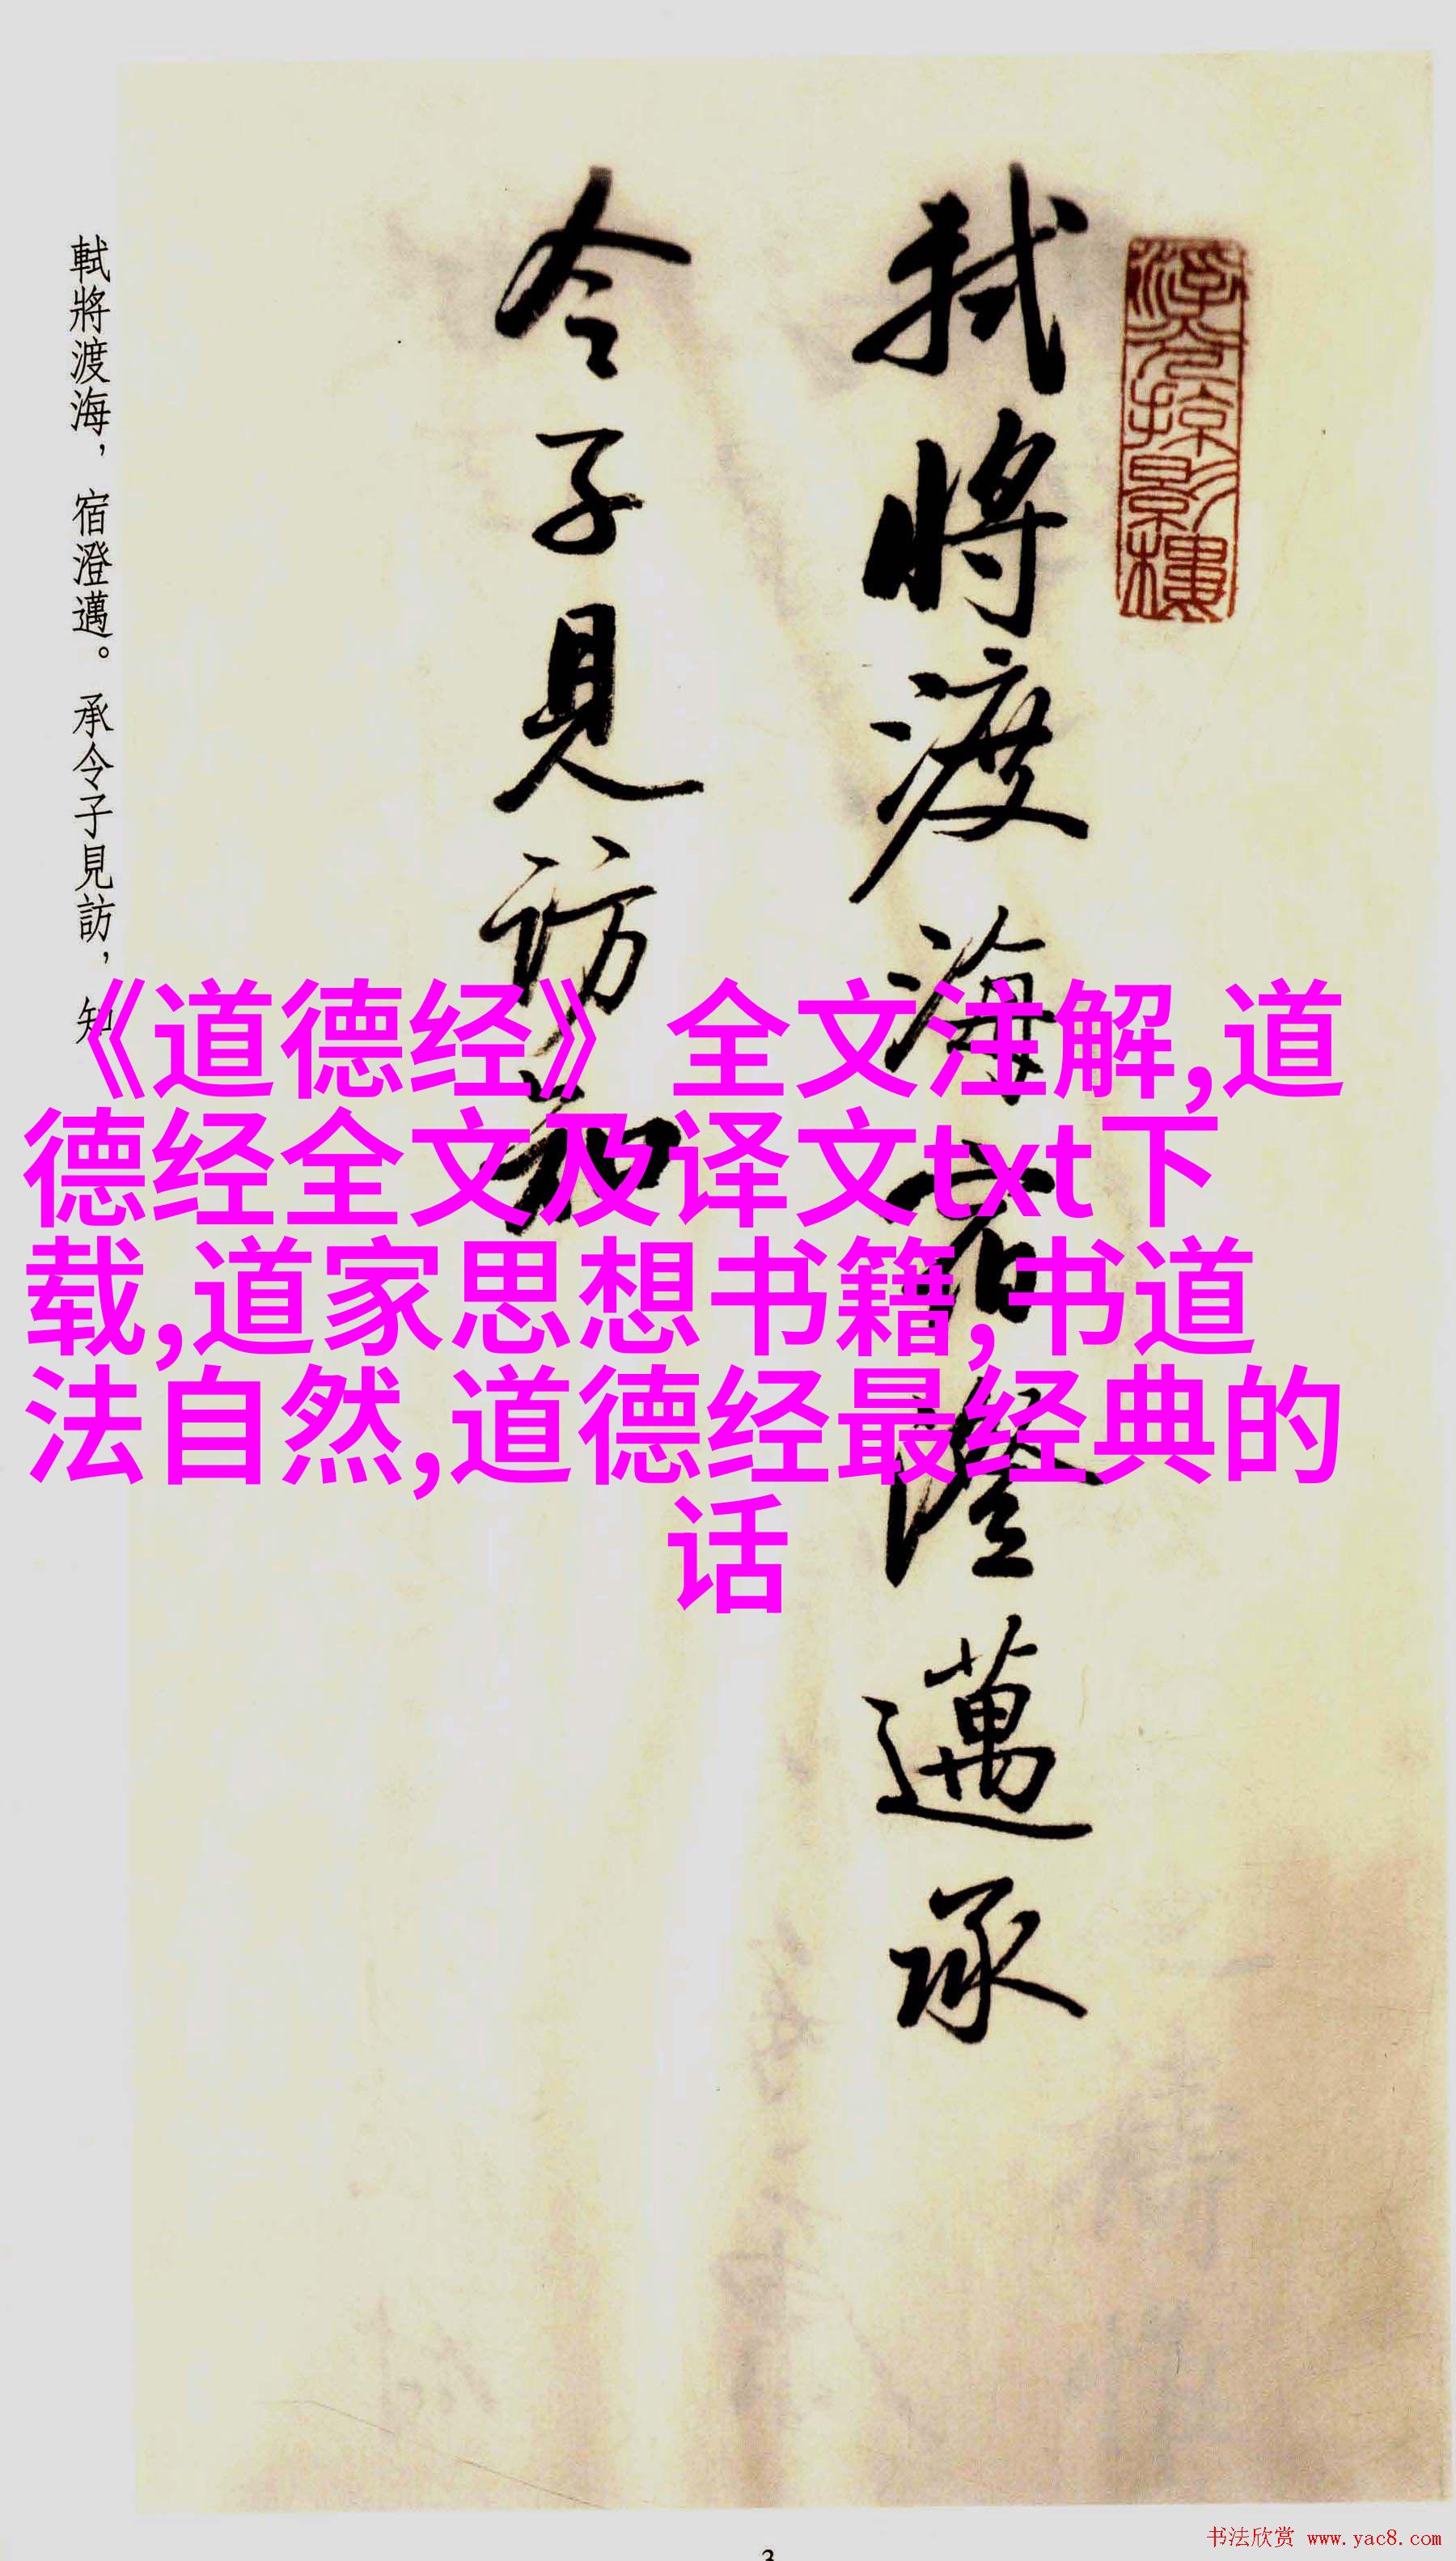 軾將渡海宿澄邁承
令子見訪知
軾將渡海，宿澄邁。承令子見訪，知
《道德经》全文注解,道
德经全文及译文txt下
载,道家思想书籍,书道
法自然,道德经最经典的
话
书法欣赏 www.yac8.com
3